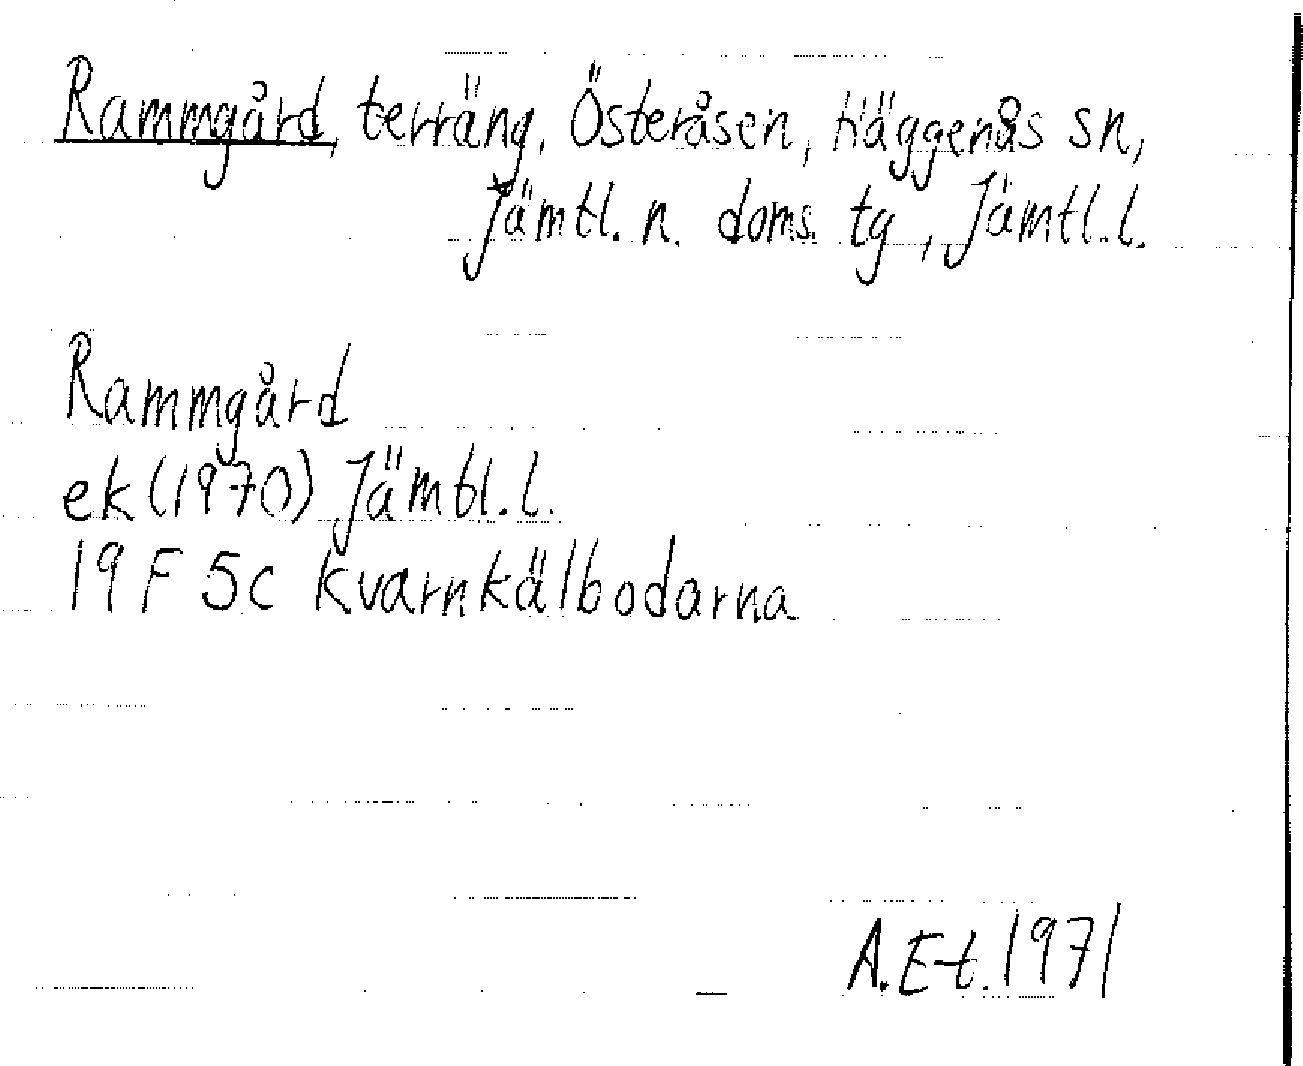 Rammgård, terräng, Österåsen, Häggenås sn,
Jämtl. n. doms. tg, Jämtl. l.
Rammgård
ek (1970) Jämtl. l.
19 F 5c Kvarnkälbodarna
A. E-t. 1971